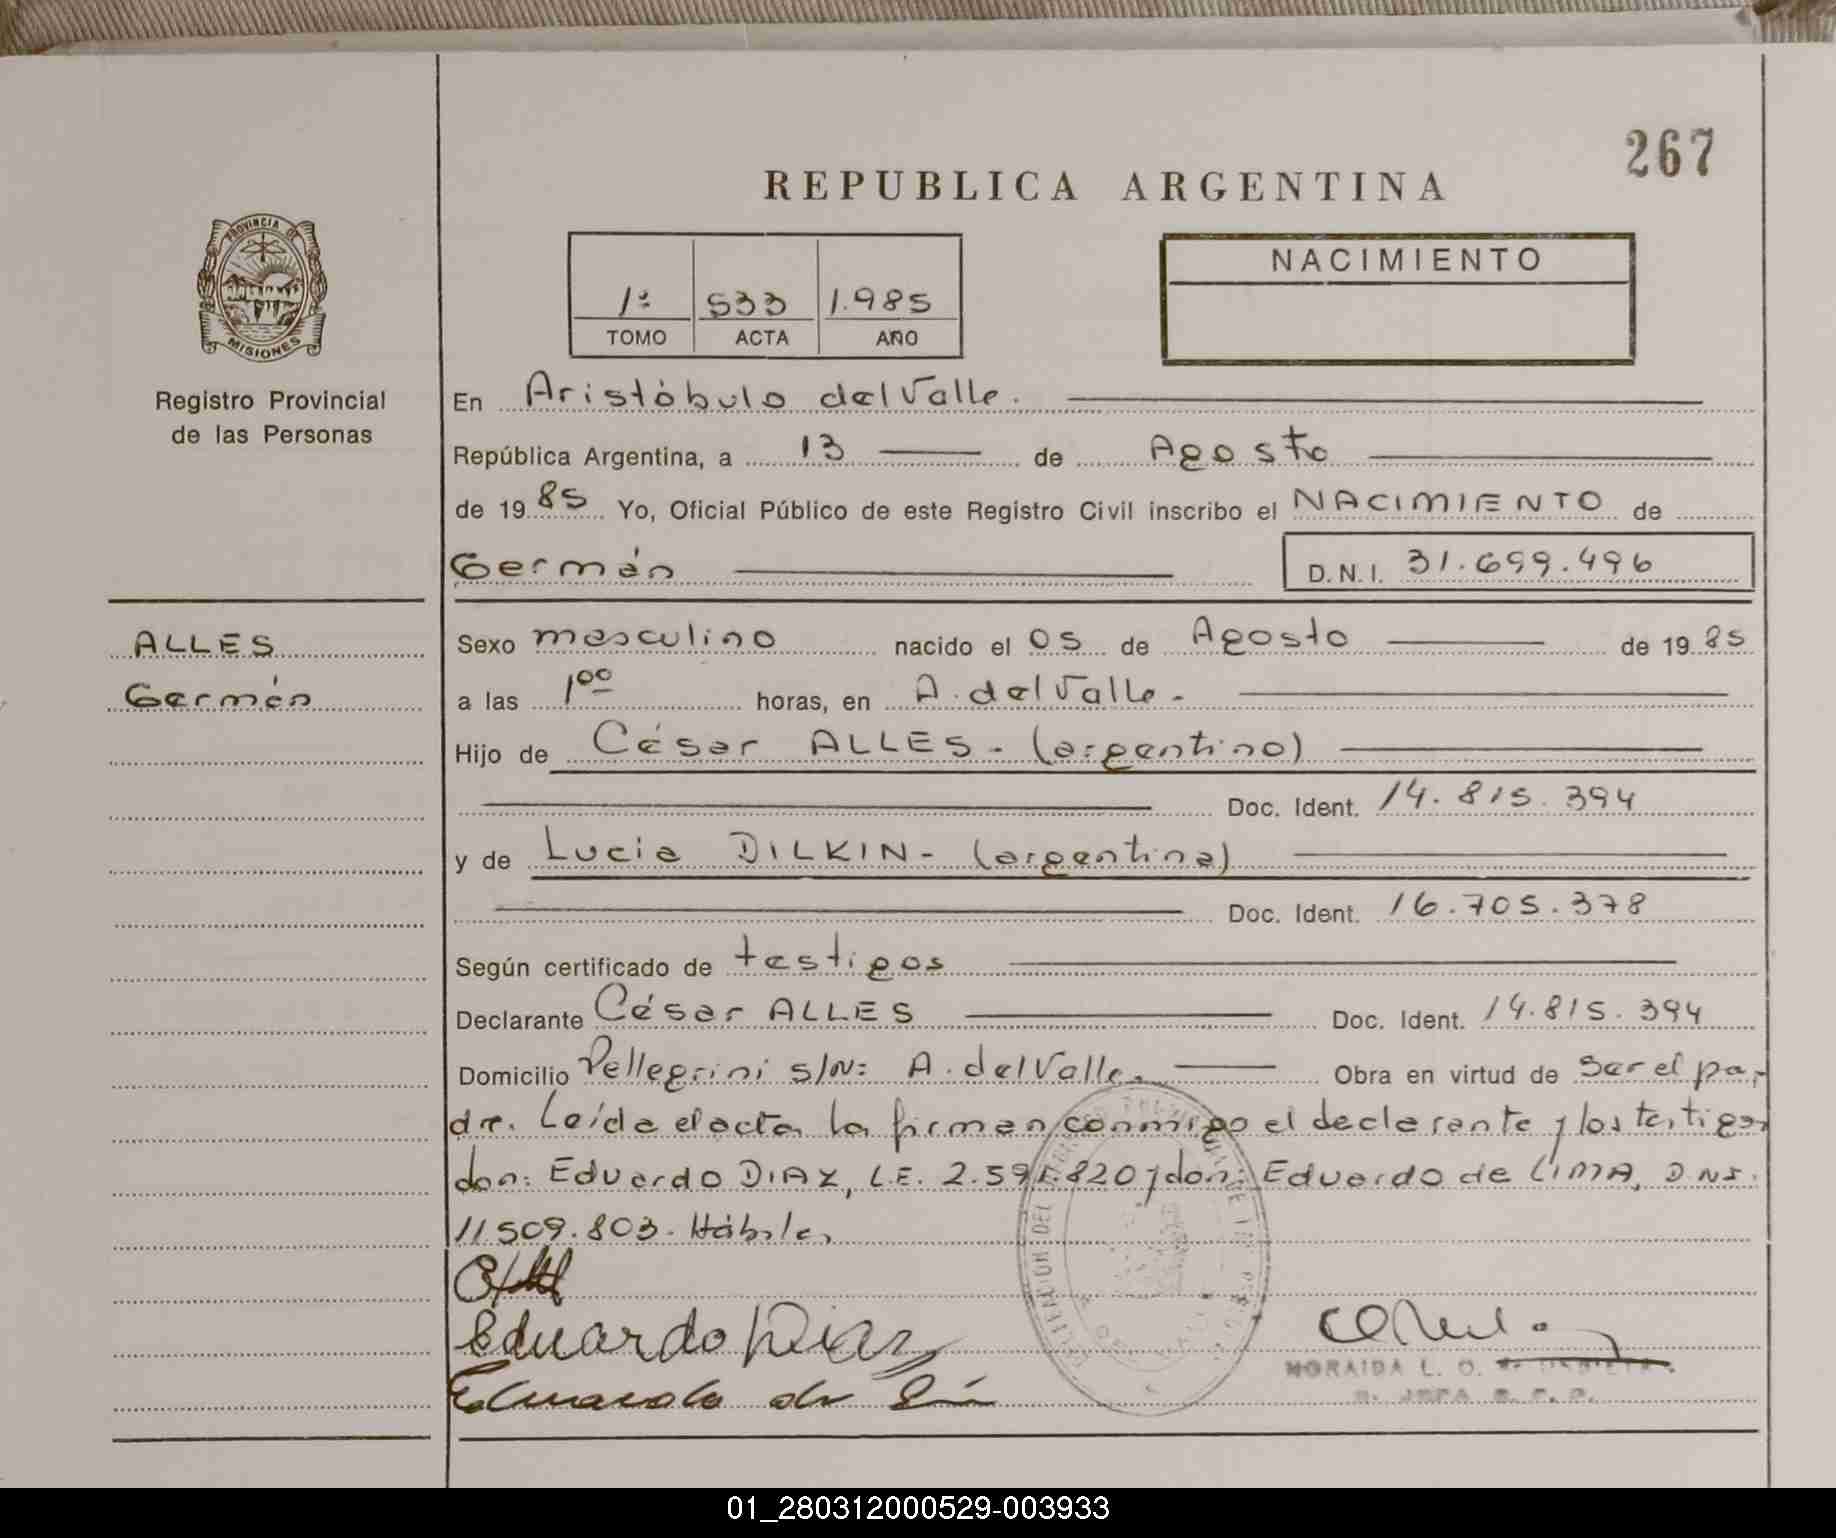 267
REPUBLICA ARGENTINA
PROVINCIA DE
MISIONES
Registro Provincial
de las Personas
1º 533 1.985
TOMO ACTA AÑO
NACIMIENTO
En Aristóbulo del Valle.
República Argentina, a 13 de Agosto
de 1985 Yo, Oficial Público de este Registro Civil inscribo el NACIMIENTO de
Germán D.N.I. 31.699.496
ALLES
Germán
Sexo masculino nacido el 05 de Agosto de 1985
a las 1⁰⁰ horas, en A. del Valle.-
Hijo de César ALLES.- (argentino)
Doc. Ident. 14.815.394
y de Lucia DILKIN- (argentina)
Doc. Ident. 16.705.378
Según certificado de testigos
Declarante César ALLES Doc. Ident. 14.815.394
Domicilio Pellegrini s/Nº A. del Valle. Obra en virtud de ser el pa-
dre. Leída el acta la firman conmigo el declarante y los testigos
don: Eduardo DIAZ, L.E. 2.591.820 y don: Eduardo de LIMA, D.N.I.
11.509.803. Hábiles
Eduardo Diaz
Eduardo de
MORAIDA L. O.
01_280312000529-003933